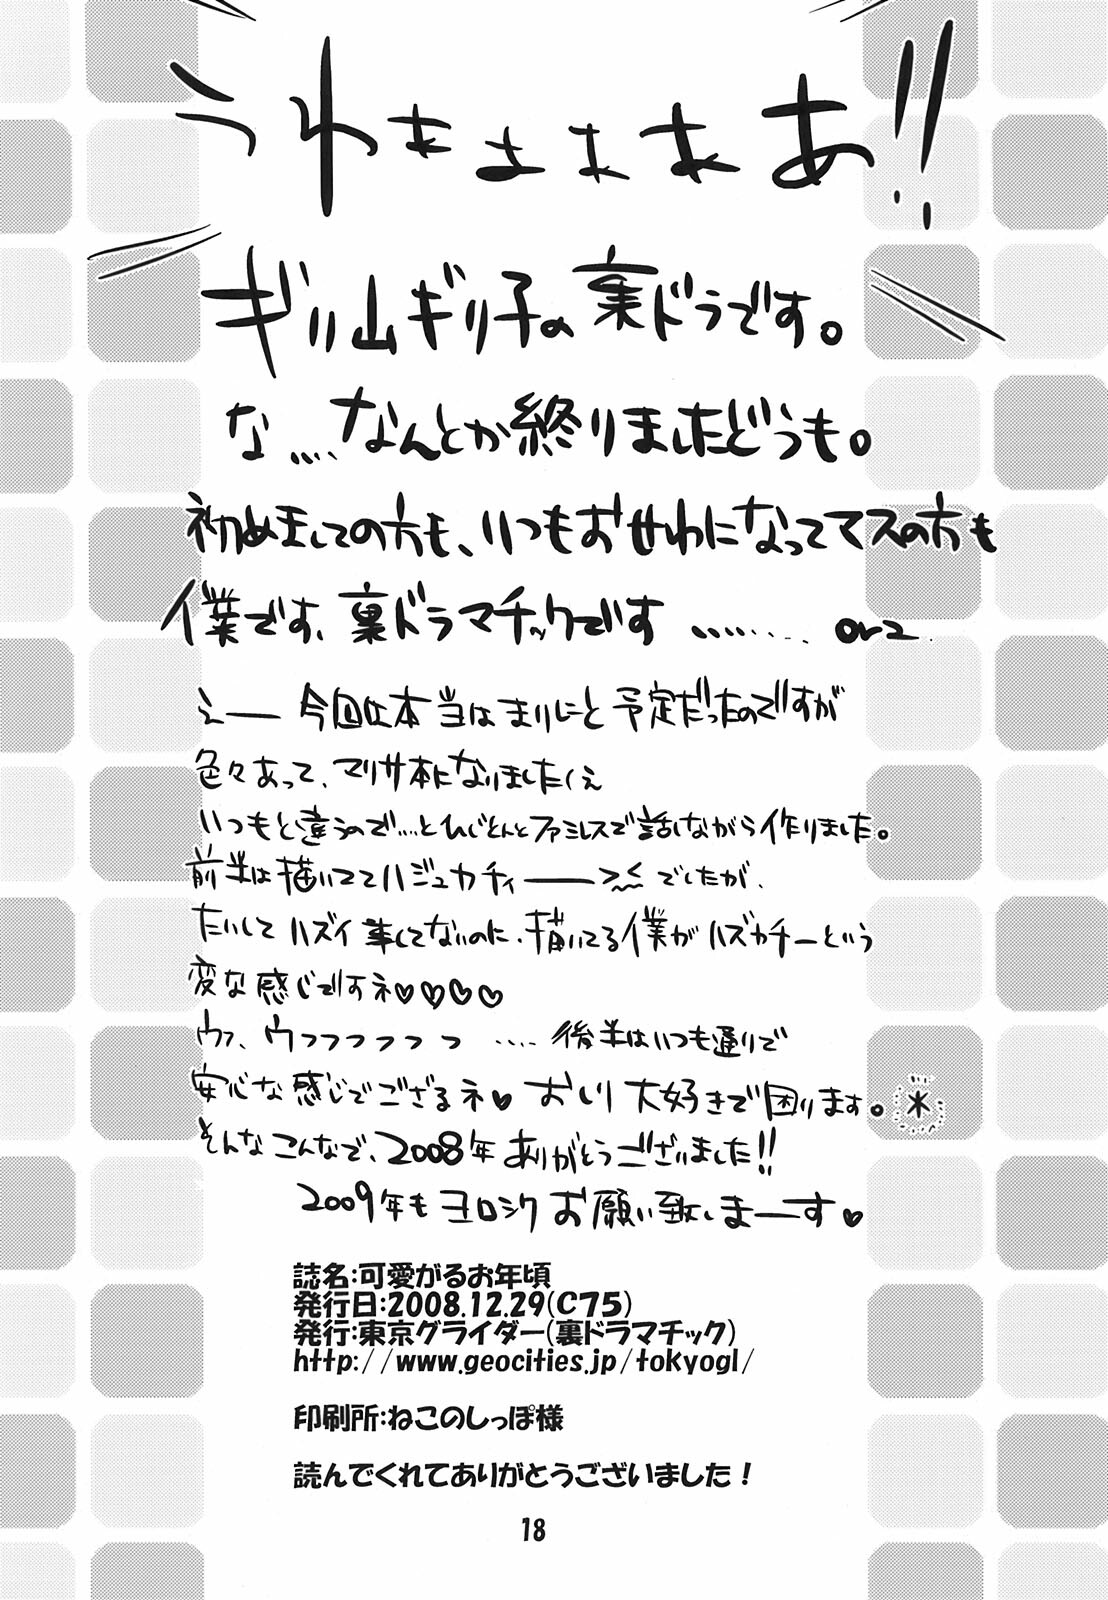 うわぁぁぁぁあ!!
ギリ山ギリ子の裏ドラです。
な….なんとか終りましたどうも。
初めましての方も、いつもおせわになってマスの方も
僕です、裏ドラマチックです ……… orz
えー 今回は本当はまりにと予定だったのですが
色々あって、マリサ本になりました(え
いつもと違うので….とひじとんとファミレスで話しながら作りました。
前半は描いててハジュカチィーーっ でしたが、
たいしてハズイ事してないのに、描いてる僕がハズカチーという
変な感じですネ♡♡♡♡
ウフ、ウフフフフフフ …. 後半はいつも通りで
安心な感じでござるネ♥ おしり大好きで困ります。*
そんなこんなで、2008年ありがとうございました!!
2009年もヨロシクお願い致しまーす♥
誌名:可愛がるお年頃
発行日:2008.12.29(C75)
発行:東京グライダー(裏ドラマチック)
http://www.geocities.jp/tokyogl/
印刷所:ねこのしっぽ様
読んでくれてありがとうございました!
18